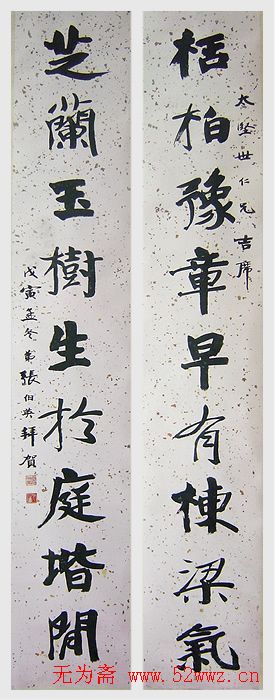 栝柏豫章早有棟梁氣
太堅世仁兄吉席
芝蘭玉樹生於庭堦閒
戊寅孟冬弟張伯英拜賀
无为斋 www.52wwz.cn